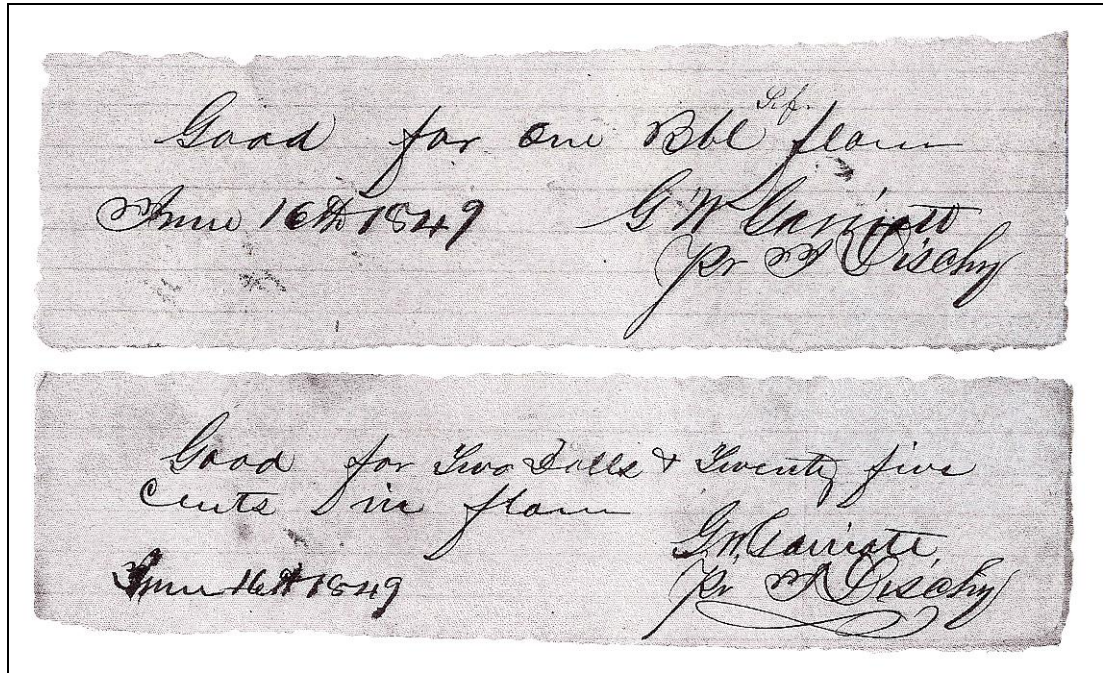 Good for one Bbl Sup. flour
June 16th 1849
G W Garriott
Pr
Good for Two Dolls & Twenty five
Cents in flour
June 16th 1849
G.W. Garriott
Pr